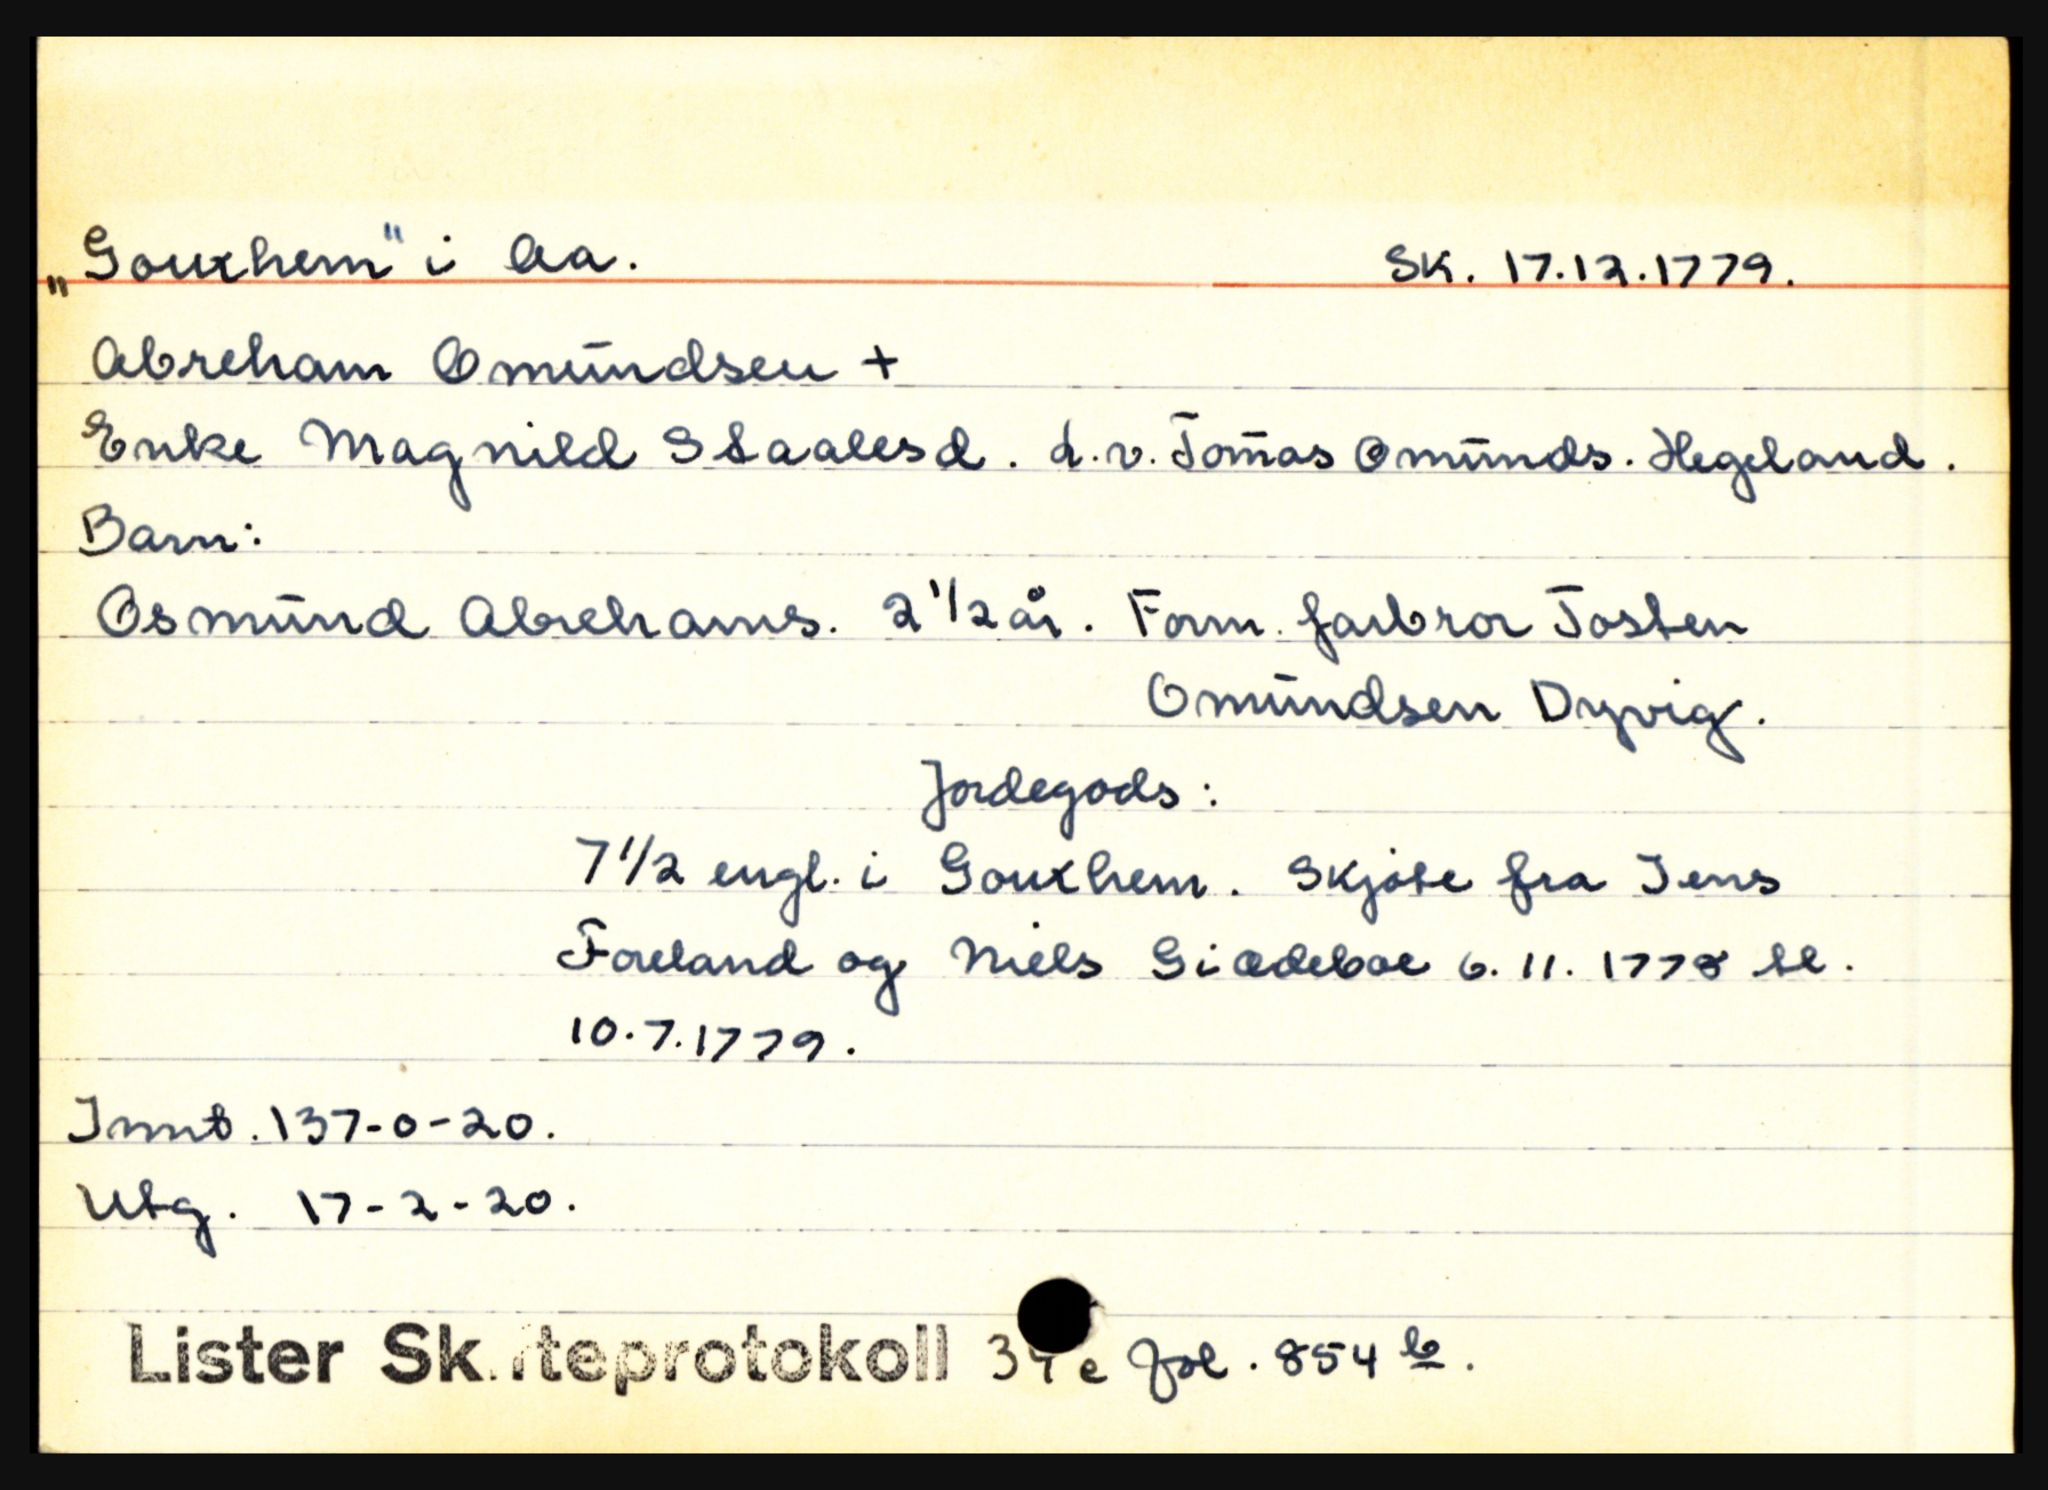 „Gouxhem" i Aa. Sk. 17.12.1779.
Abreham Omundsen +
Enke Magnild Staalesd. L.v. Tomas Omunds. Hegeland.
Barn:
Osmund Abrehams. 2 1/2 år. Form. farbror Tosten
Omundsen Dyvig.
Jordegods:
7 1/2 engl. i Gouxhem. Skjøte fra Jens
Foreland og Niels Giædeboe 6.11.1778 tl.
10.7.1779.
Innt. 137-0-20.
Utg. 17-2-20.
Lister Sk iteprotokoll 34 e fol. 854 b.